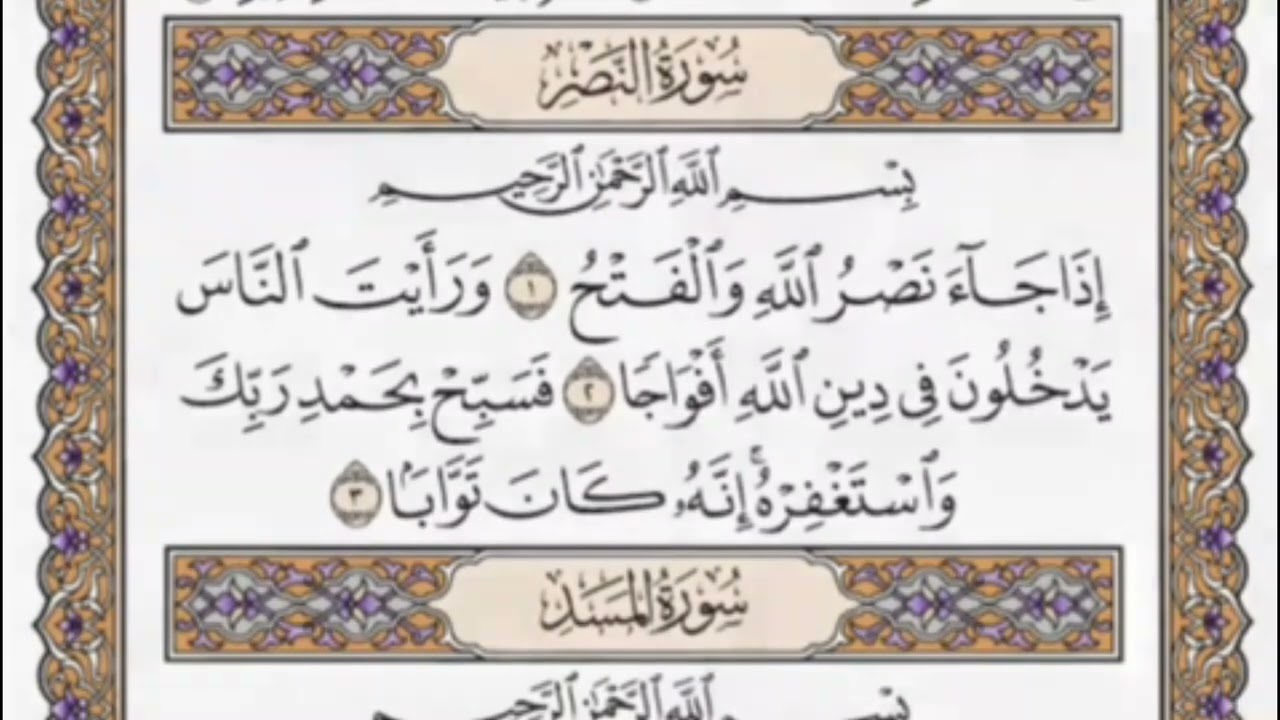 سُورَةُ النَّصْرِ
بِسْمِ ٱللَّهِ ٱلرَّحْمَٰنِ ٱلرَّحِيمِ
إِذَا جَآءَ نَصْرُ ٱللَّهِ وَٱلْفَتْحُ ١ وَرَأَيْتَ ٱلنَّاسَ
يَدْخُلُونَ فِى دِينِ ٱللَّهِ أَفْوَاجًا ٢ فَسَبِّحْ بِحَمْدِ رَبِّكَ
وَٱسْتَغْفِرْهُ ۚ إِنَّهُۥ كَانَ تَوَّابًۢا ٣
سُورَةُ المَسَدِ
بِسْمِ ٱللَّهِ ٱلرَّحْمَٰنِ ٱلرَّحِيمِ